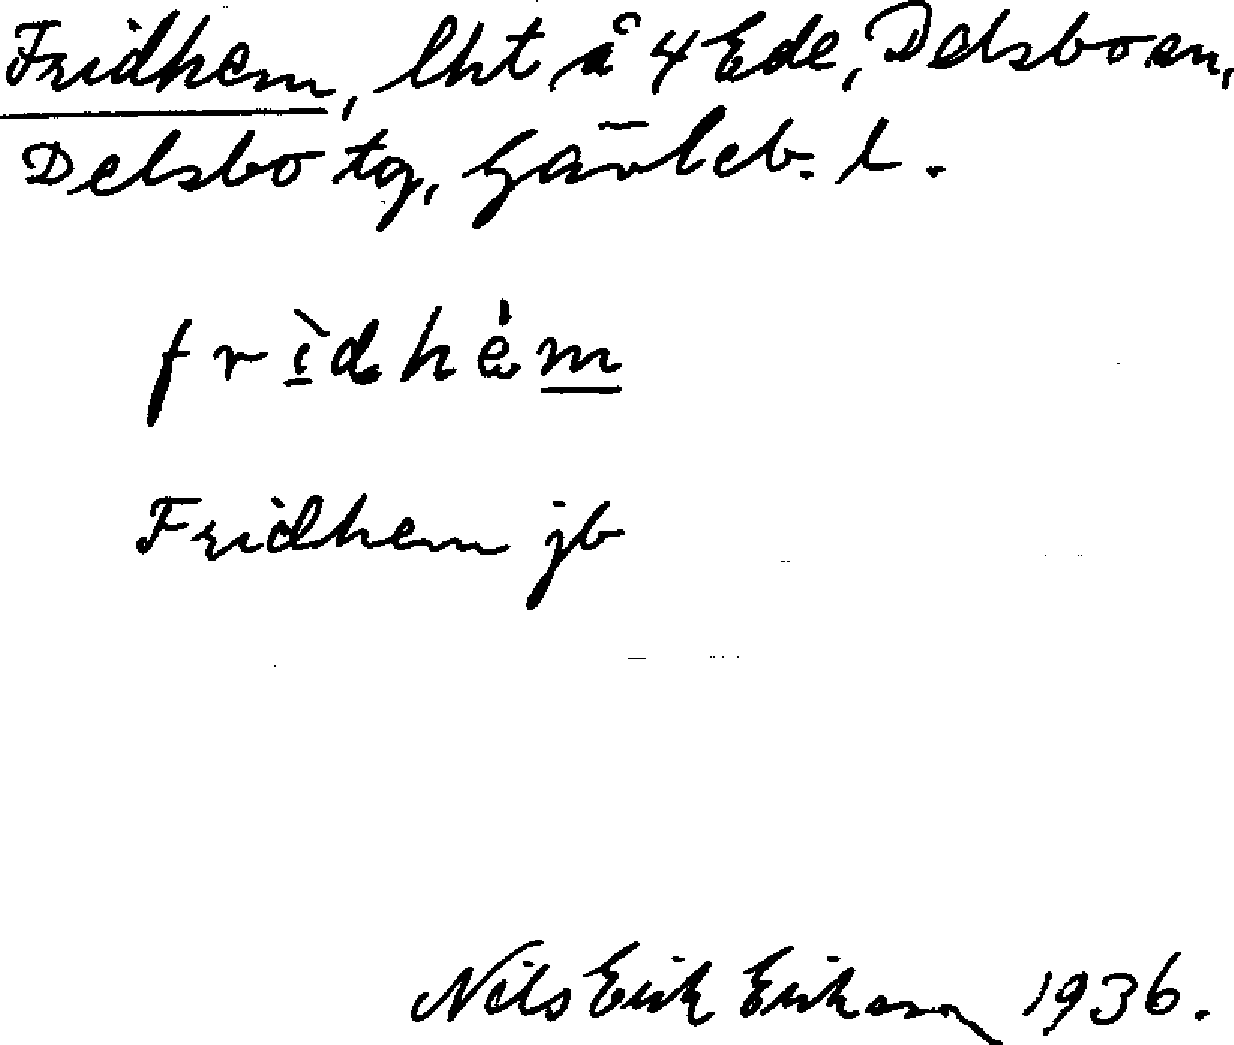 Fridhem, lht å 4 Ede, Delsbo sn,
Delsbo tg, Gävleb. l.
frì̲dhe̍m̲
Fridhem jb
Nils Erik Erikson 1936.